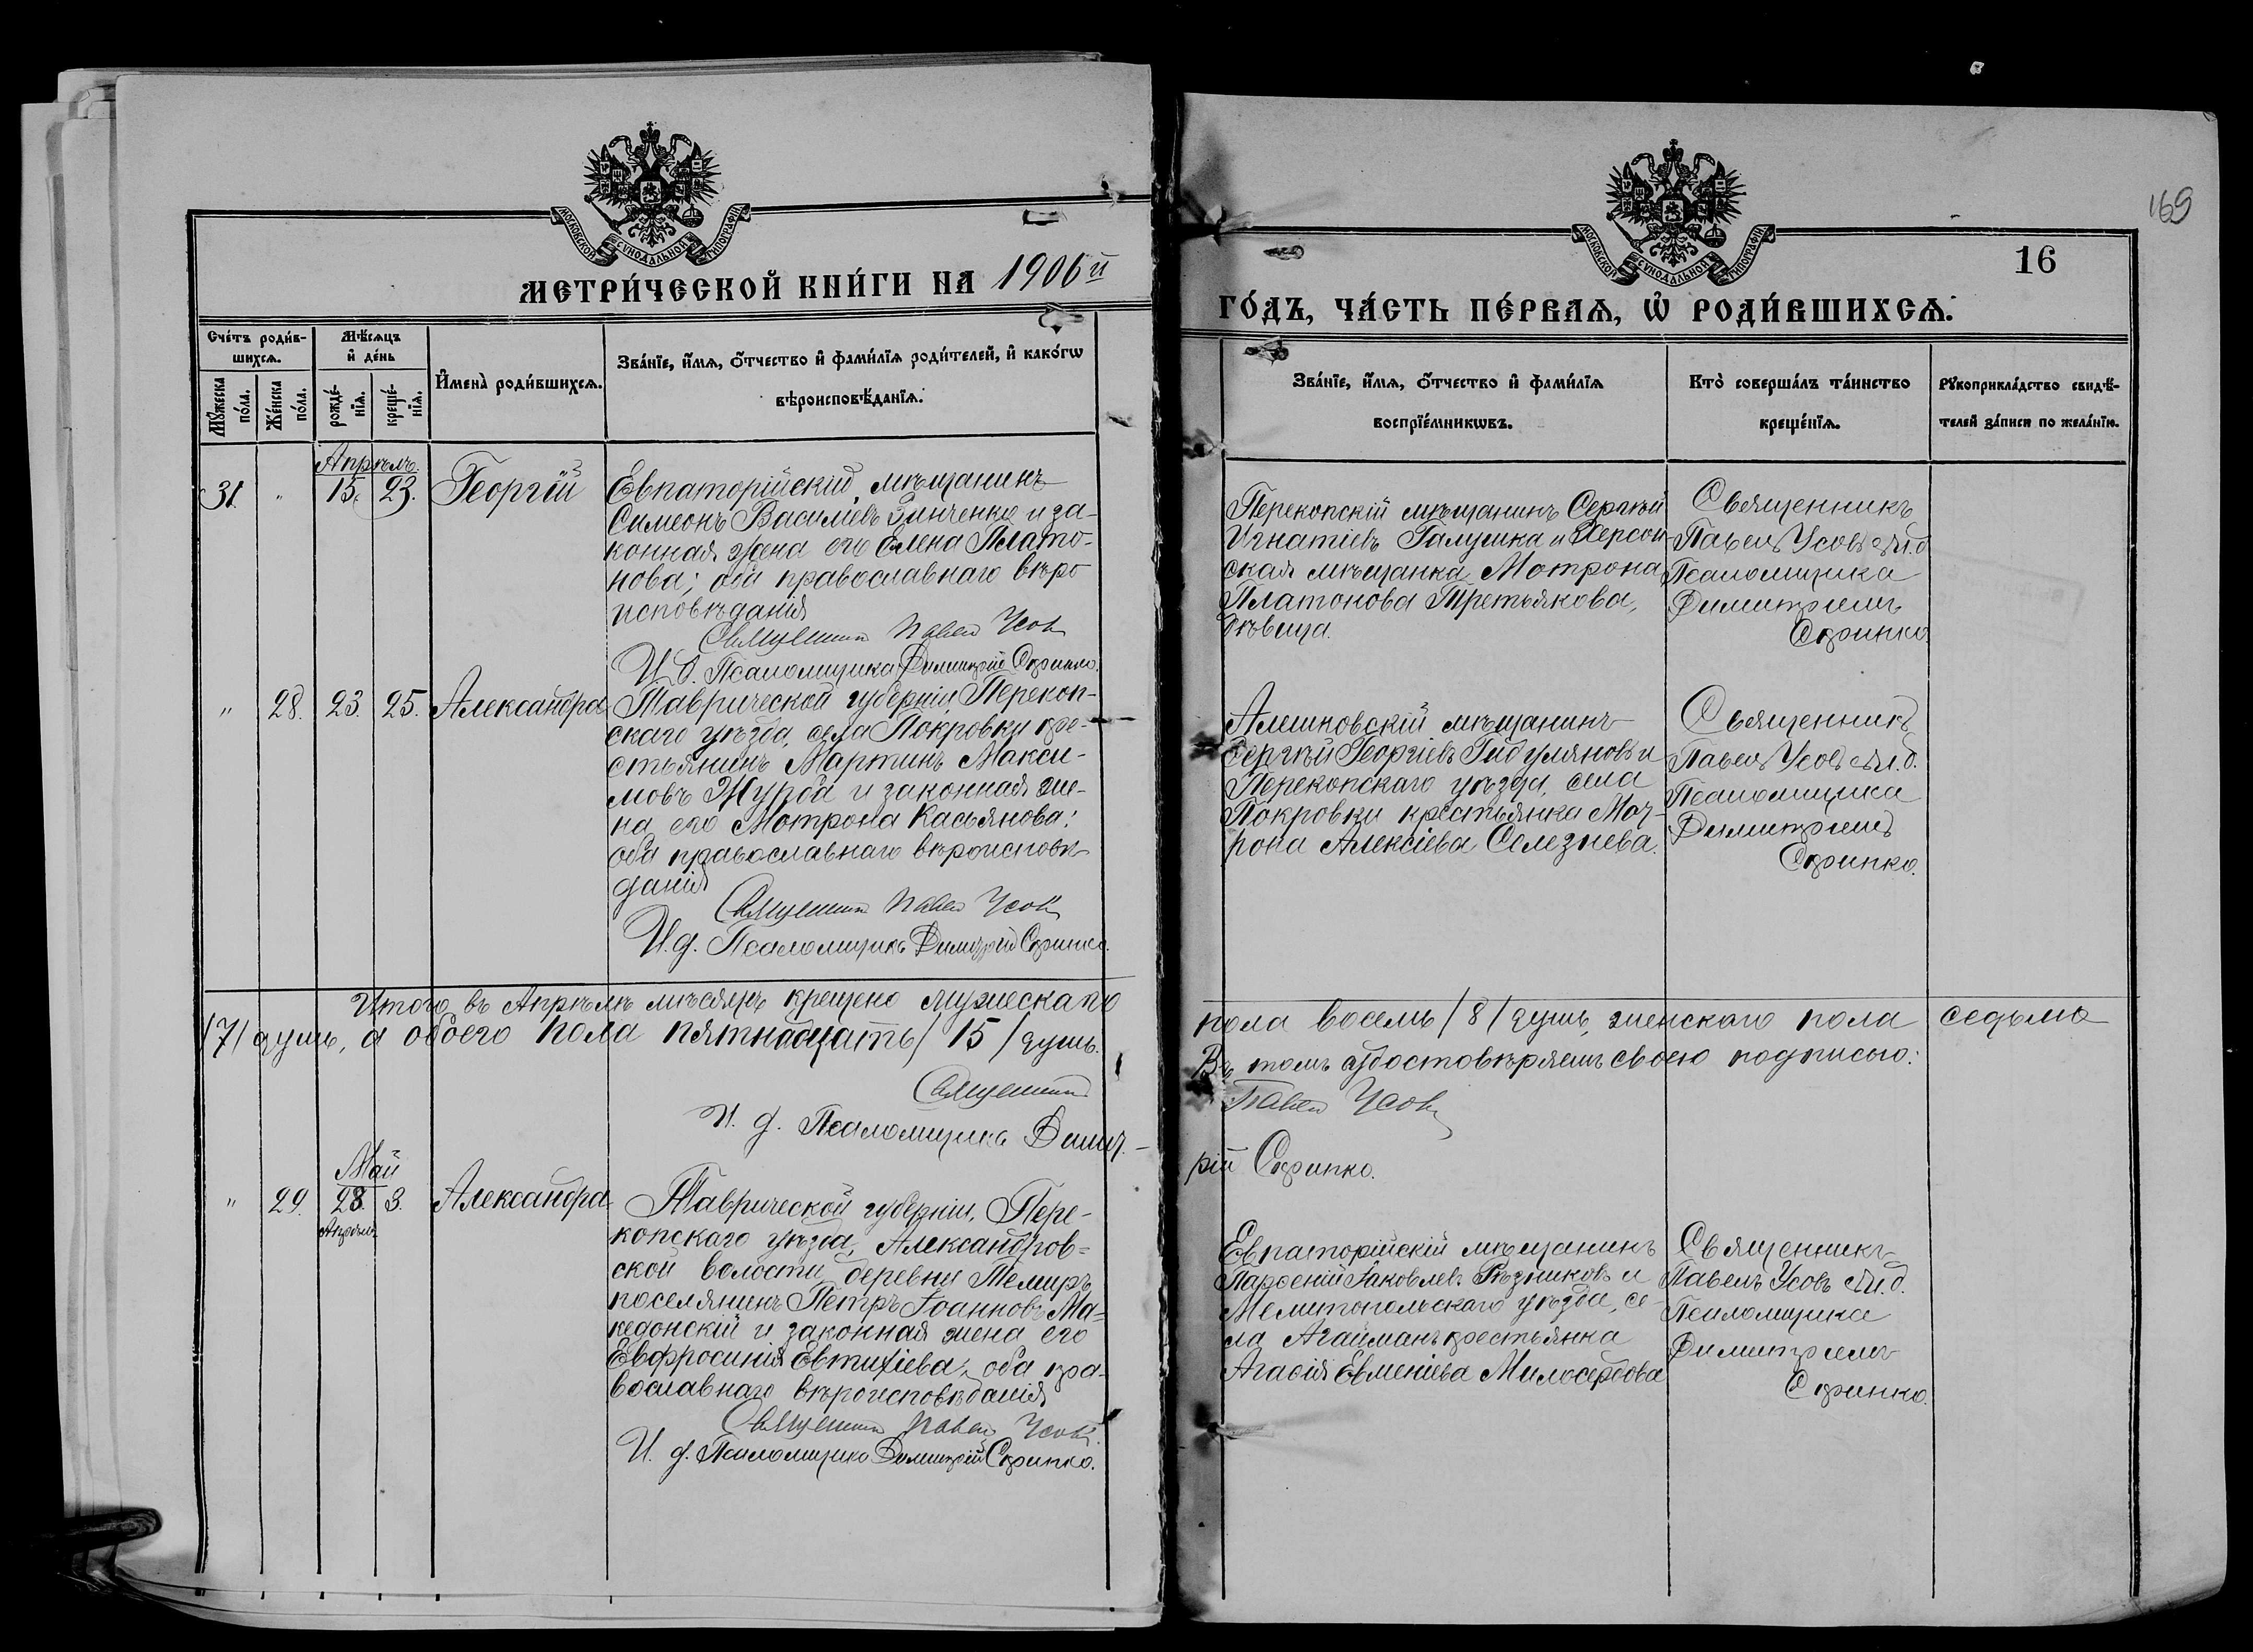 МОСКОВСКОЙ СУНОДАЛЬНОЙ ТИПОГРАФІИ
МЕТРИ́ЧЕСКОЙ КНИ́ГИ НА 1906й
Сче́тъ роди́в-
шихсѧ.
Мѣ́сѧцъ
и҆ де́нь
Мꙋ́жеска
по́ла.
Же́нска
по́ла.
рожде́-
нїѧ.
креще́-
нїѧ.
И҆мена̀ роди́вшихсѧ.
Зва́нїе, и҆́мѧ, ѻ҆́тчество и҆ фами́лїѧ роди́телей, и҆ како́гѡ
вѣроисповѣ́данїѧ.
Апрѣль.
31. " 15. 23. Георгій
Евпаторійскій мѣщанинъ
Симеонъ Василіевъ Зинченко и за-
конная жена его Елена Плато-
нова; оба православнаго вѣро
исповѣданія
Священникъ Павелъ Усовъ
И. д. Псаломщика Димитрій Скрипко.
" 28. 23. 25. Александра
Таврической губерніи Перекоп-
скаго уѣзда, села Покровки кре-
стьянинъ Мартинъ Макси-
мовъ Журба и законная же-
на его Мотрона Касьянова;
оба православнаго вѣроисповѣ-
данія
Священникъ Павелъ Усовъ
И. д. Псаломщика Димитрій Скрипко.
Итого въ Апрѣлѣ мѣсяцѣ крещено мужескаго
/7/ душъ, а обоего пола пятнадцать /15/ душъ.
Священникъ
И. д. Псаломщика Димит-
Май
" 29. 28. 3. Александра
Апрѣля
Таврической губерніи, Пере-
копскаго уѣзда, Александров=
ской волости деревни Темиръ
поселянинъ Петръ Іоанновъ Ма=
кедонскій и законная жена его
Евфросинія Евтихіева; оба пра-
вославнаго вѣроисповѣданія
Священникъ Павелъ Усовъ.
И. д. Псаломщика Димитрій Скрипко.
169
МОСКОВСКОЙ СУНОДАЛЬНОЙ ТИПОГРАФІИ
16
ГО́ДЪ, ЧА́СТЬ ПЕ́РВАѦ, Ѡ҆ РОДИ́ВШИХСѦ.
Зва́нїе, и҆́мѧ, ѻ҆́тчество и҆ фами́лїѧ
воспрїе́мникѡвъ.
Кто̀ соверша́лъ та́инство
креще́нїѧ.
Рꙋкоприкла́дство свидѣ́-
телей за́писи по жела́нїю.
Перекопскій мѣщанинъ Сергѣй
Игнатіевъ Галушка и Херсон-
ская мѣщанка Мотрона
Платонова Третьякова,
дѣвица.
Священникъ
Павелъ Усовъ съ И. д.
Псаломщика
Димитріемъ
Скрипко
Алешковскій мѣщанинъ
Сергѣй Георгіевъ и
Перекопскаго уѣзда, села
Покровки крестьянка Мот-
рона Алексіева Селезнева.
Священникъ
Павелъ Усовъ съ И. д.
Псаломщика
Димитріемъ
Скрипко.
пола восемь /8/ душъ, женскаго пола седьмо
Въ томъ удостовѣряемъ своею подписью:
Павелъ Усовъ
рій Скрипко.
Евпаторійскій мѣщанинъ
Парѳеній Іаковлевъ Рѣзниковъ и
Мелитопольскаго уѣзда, се-
ла Агайманъ крестьянка
Агаѳія Евменіева Милосердова
Священникъ
Павелъ Усовъ съ И. д.
Псаломщика
Димитріемъ
Скрипко.